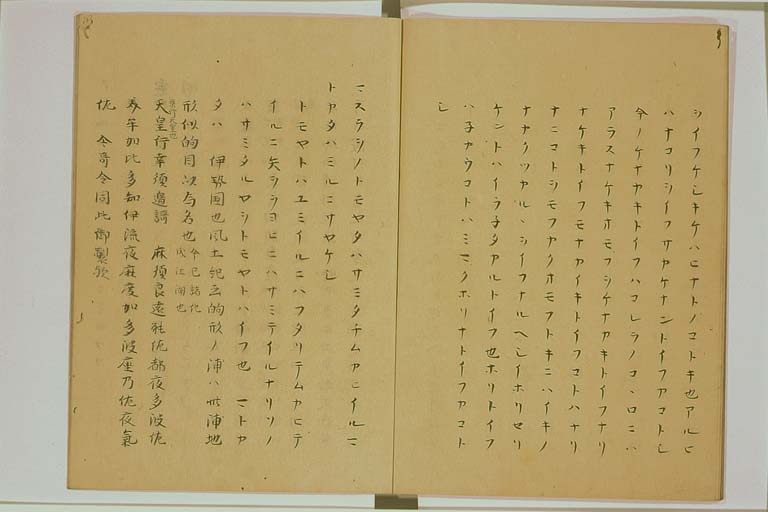 シイフケレキケハヒナトノコトキ也アルヒ
ハナコリシイフサカケナントイフアコトレ
今ノケナカキトイフハコレラノコヽロニハ
アラスナケキホモフシケナカキトイフナリ
ナケキトイフモナカイキトイフコトハナリ
ナニコトシモフカクホモフトキニハイキノ
ナカクツカルヽシイフナルヘシイホリセリ
ケントハイラ子タアルトイフ也ホリトイフ
ハ子カウコトハミマクホリナトイフカコト
シ
マスラシノトモヤタハサミタチムカヒイルマ
トカタハミルニサヤケシ
トモヤトハユミイルニハフタリテムカヒテ
イルニ矢ヲヲヨヒニハサミテイルナリソノ
ハサミタルヤシトモヤトハイフ也 マトカ
タハ 伊勢国也風土記云的形ノ浦ハ此浦地
形似的因以为名也 今已跡化成江湖也
天皇行幸須邉謌 麻須良遠能佐都夜多波佐
弥牟加比多知伊流夜麻度加多波麻乃佐夜氣
佐 今哥今同此御製歟